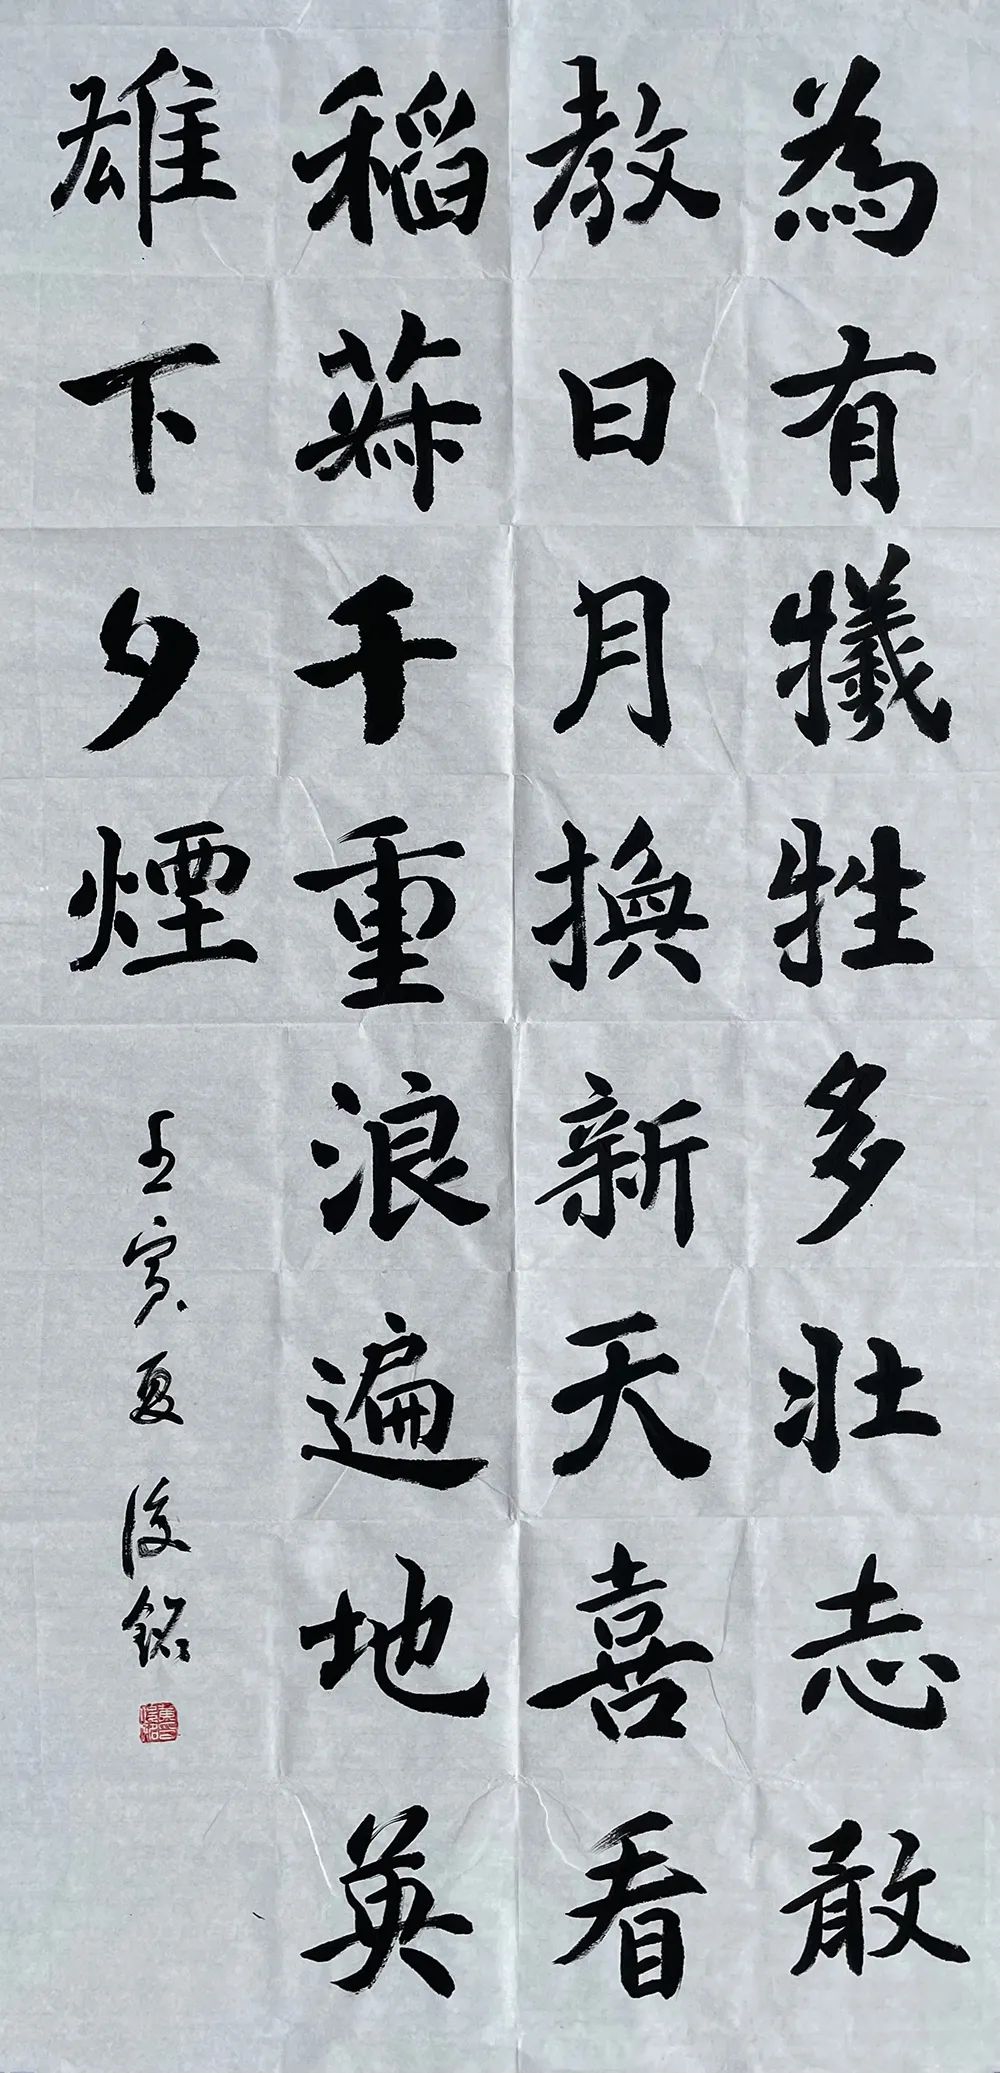 為有犧牲多壯志敢
教日月換新天喜看
稻菽千重浪遍地英
雄下夕煙
壬寅夏俊銘